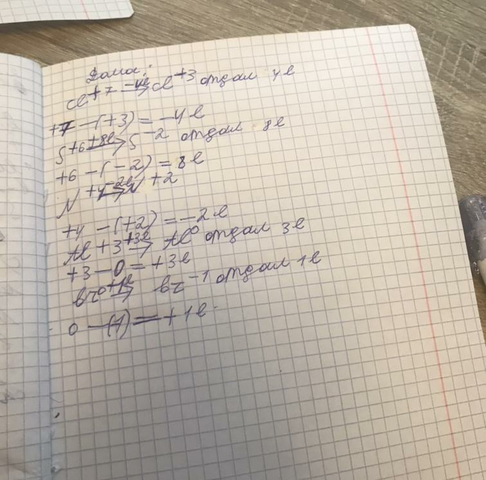 Дома:
Cl+7 -4e→ Cl+3 отдал 4e
+7-(+3)=-4e
S+6 +8e→ S-2 отдал 8e
+6-(-2)=8e
N+4 -2e→ N+2
+4-(+2)=-2e
Al+3 +3e→ Al0 отдал 3e
+3-0=+3e
br0 +1e→ br-1 отдал 1e
0-(1)=+1e